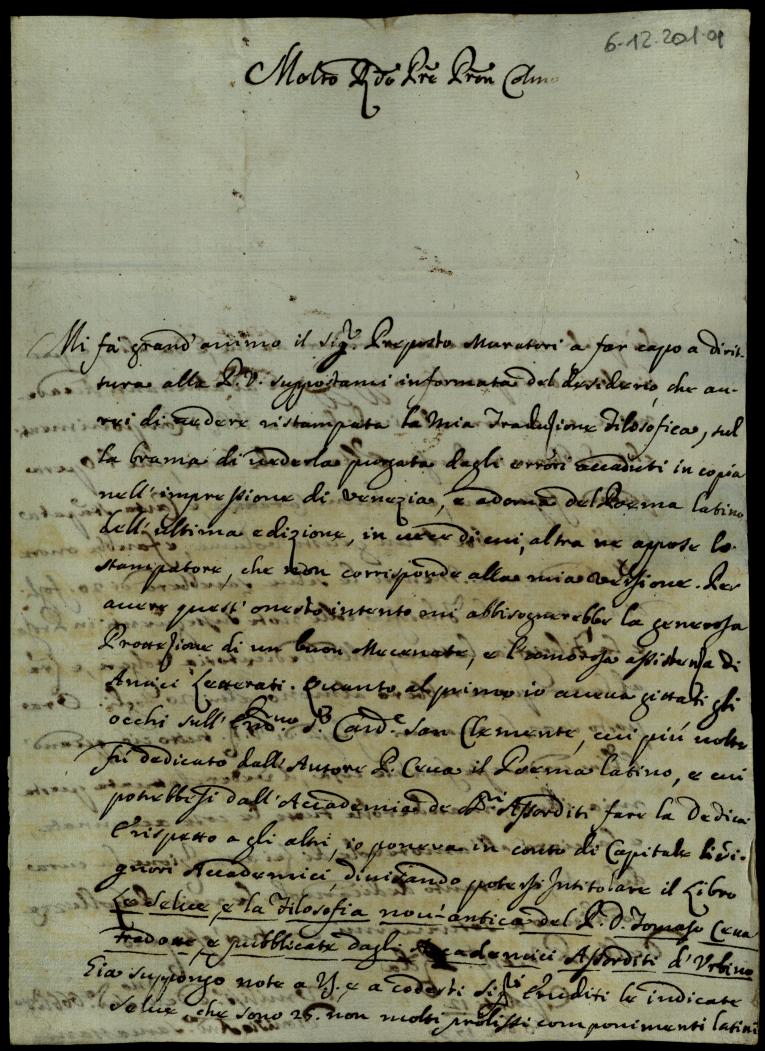 6-12.201.01
Molto Rdo Pre Pron Colmo
Mi fà grand'animo il Sigr. Preposto Muratori a far capo a dirit-
tura alla P.V. suppostami informata del desiderio, che au-
rei di vedere ristampata la mia Traduzione Filosofica, sul
la brama di vederla purgata dagli errori accaduti in copia
nell'impressione di Venezia, e adorna del Poema latino
dell'ultima edizione, in vece di cui, altra ne appose lo
stampatore, che non corrisponde alla mia versione. Per
avere quest'onesto intento mi abbisognerebbe la generosa
Protezione di un buon Mecenate, e l'amorosa assistenza di
Amici Letterati. Quanto al primo io aveva gittati gli
occhi sull'Emo Sr. Carde San Clemente, cui più volte
fù dedicato dall'Autore P. Ceva il Poema latino, e cui
potrebbesi dall'Accademia de Sri Assorditi fare la Dedica
E rispetto a gli altri, io poneva in conto di Capitale li Si-
gnori Accademici, divisando potersi intitolare il Libro
Le Selve, e la Filosofia nova-antica del P. D. Tomaso Ceva
tradotte, e pubblicate dagli Accademici Assorditi d'Urbino
Gia suppongo note a VS. e a codesti Sigri Eruditi le indicate
Selve, che sono 26. non molto prolissi componimenti latini